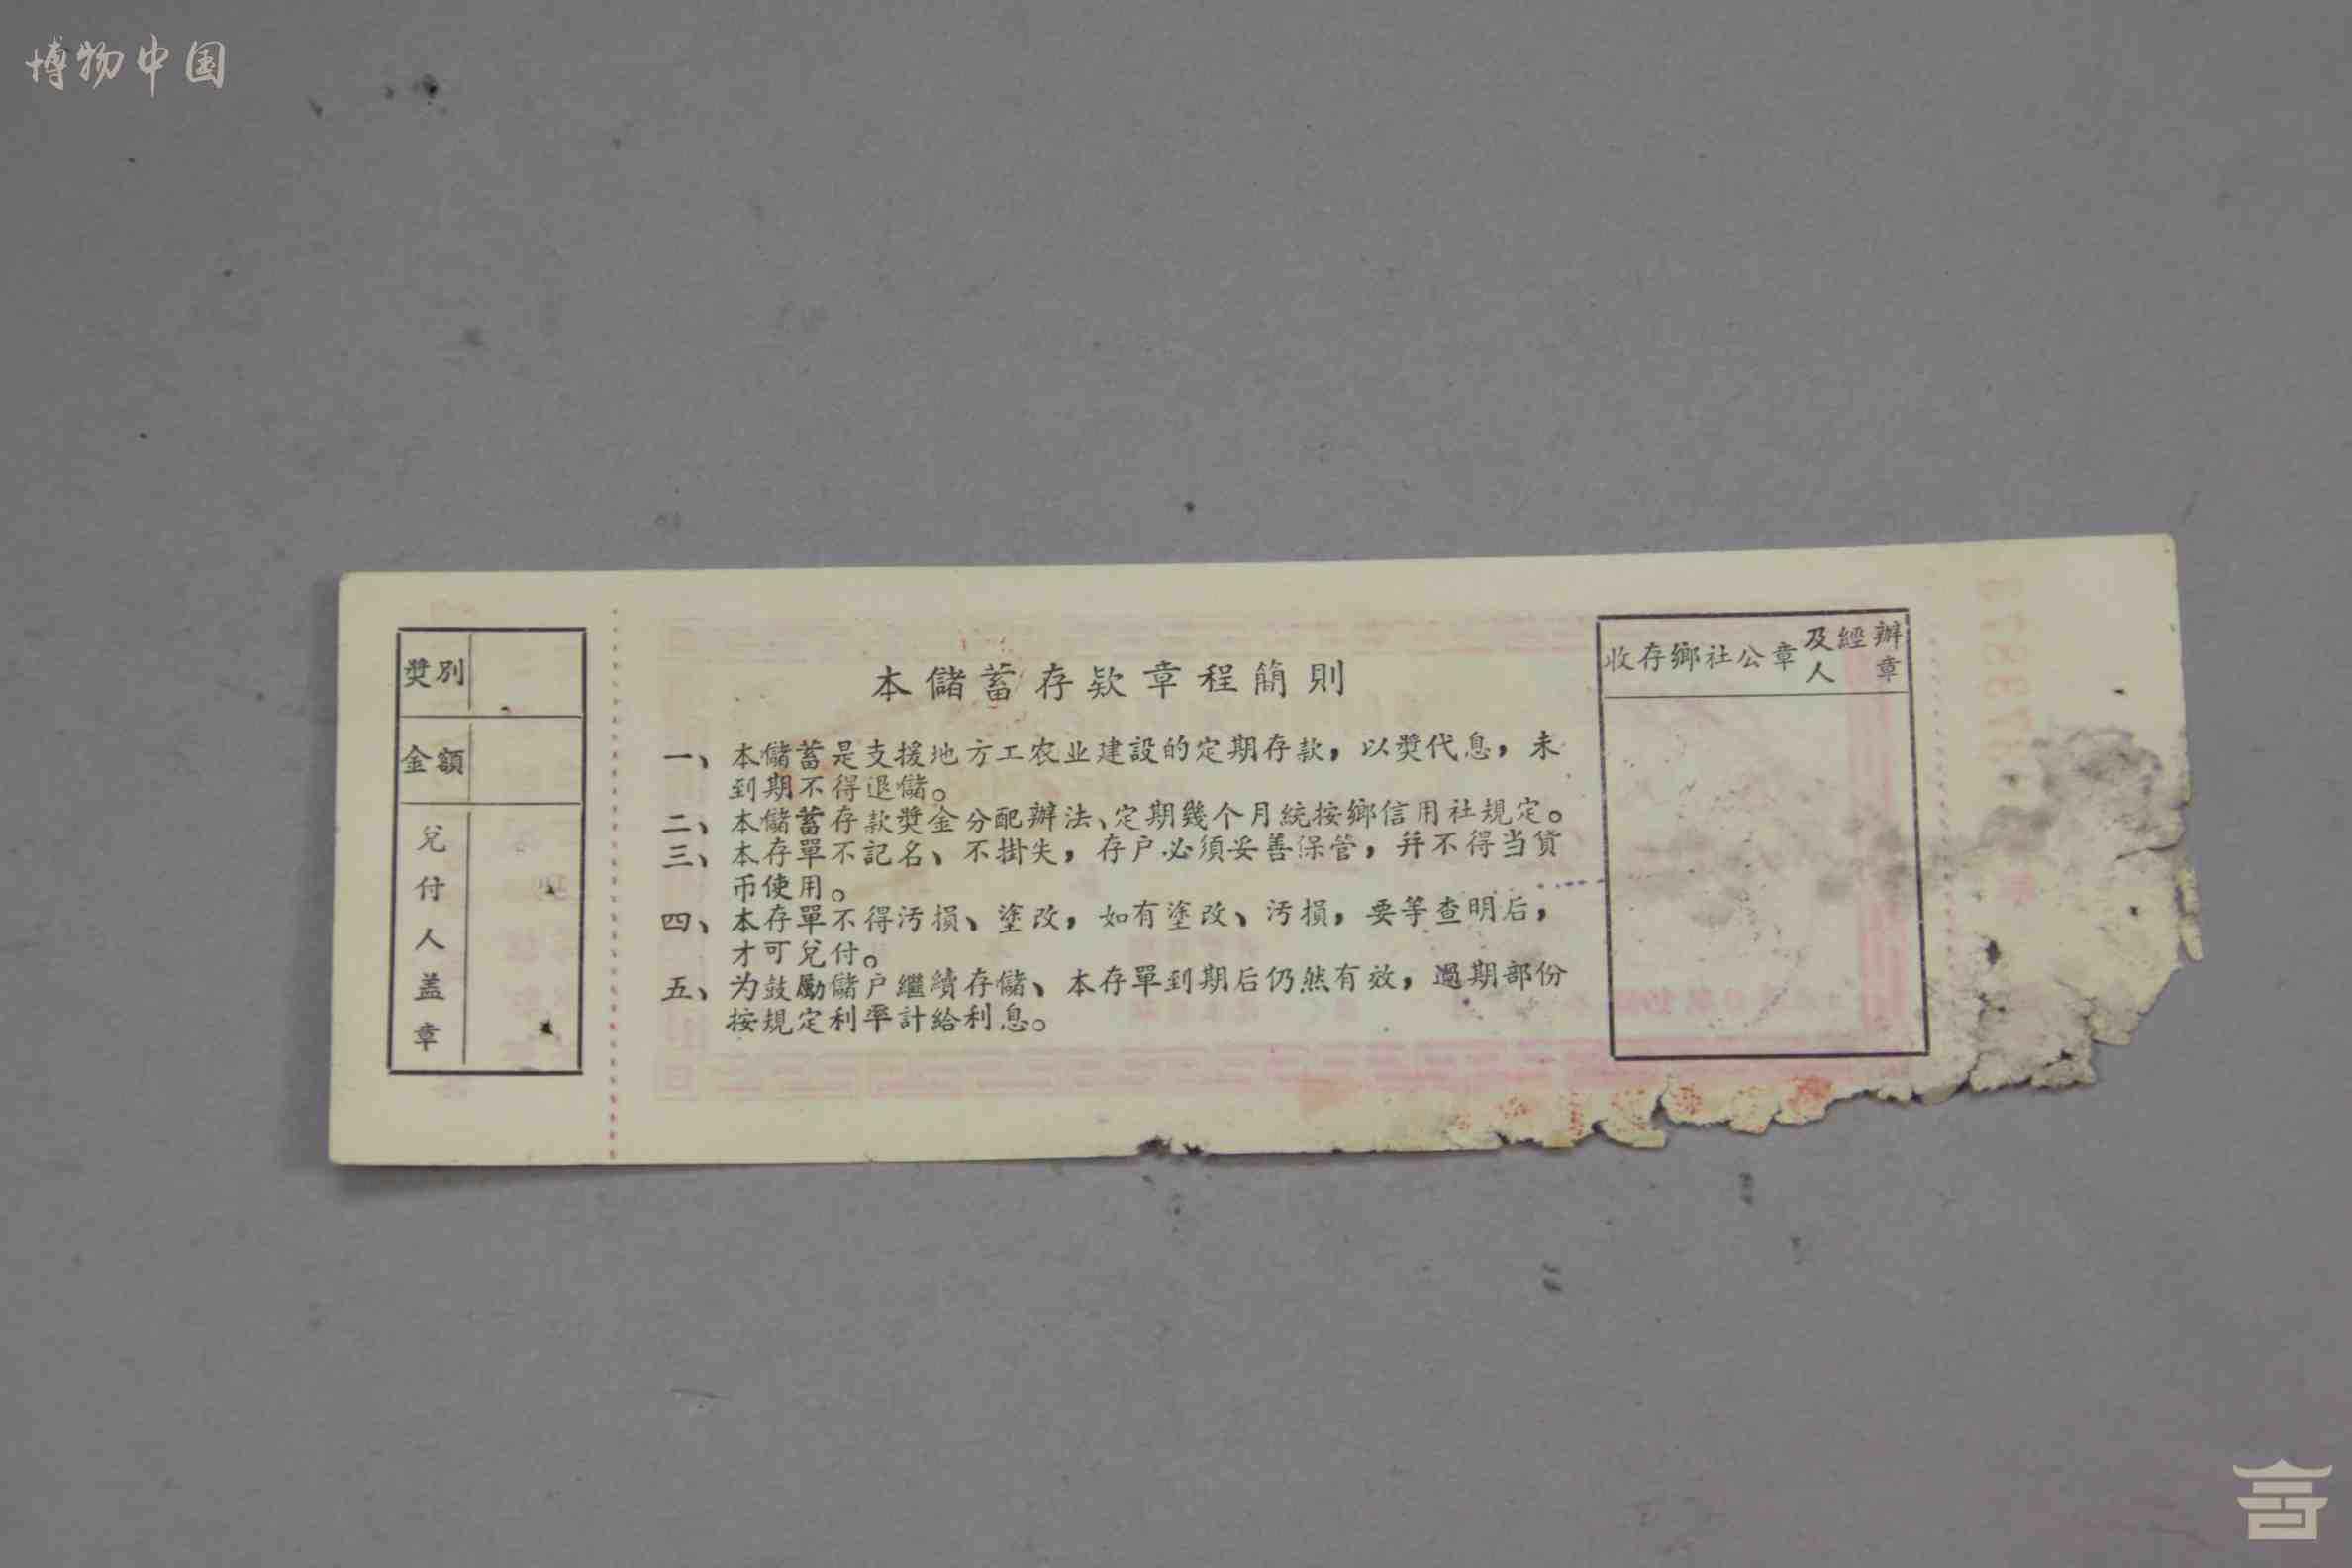 博物中国
獎別
金額
兌付人盖章
本儲蓄存欵章程簡則
一、本儲蓄是支援地方工农业建設的定期存款，以獎代息，未
到期不得退儲。
二、本儲蓄存款獎金分配辦法、定期幾个月統按鄉信用社規定。
三、本存單不記名、不掛失，存户必須妥善保管，并不得当貨
币使用。
四、本存單不得汚損、塗改，如有塗改、汚損，要等查明后，
才可兌付。
五、为鼓勵儲户繼續存儲、本存單到期后仍然有效，過期部份
按規定利率計給利息。
收存鄉社公章及經辦人章